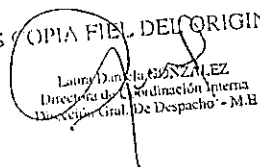 COPIA FIEL DEL ORIGIN
Laura Daniela GONZALEZ
Directora de Coordinación Interna
Dirección Gral. De Despacho - M.E